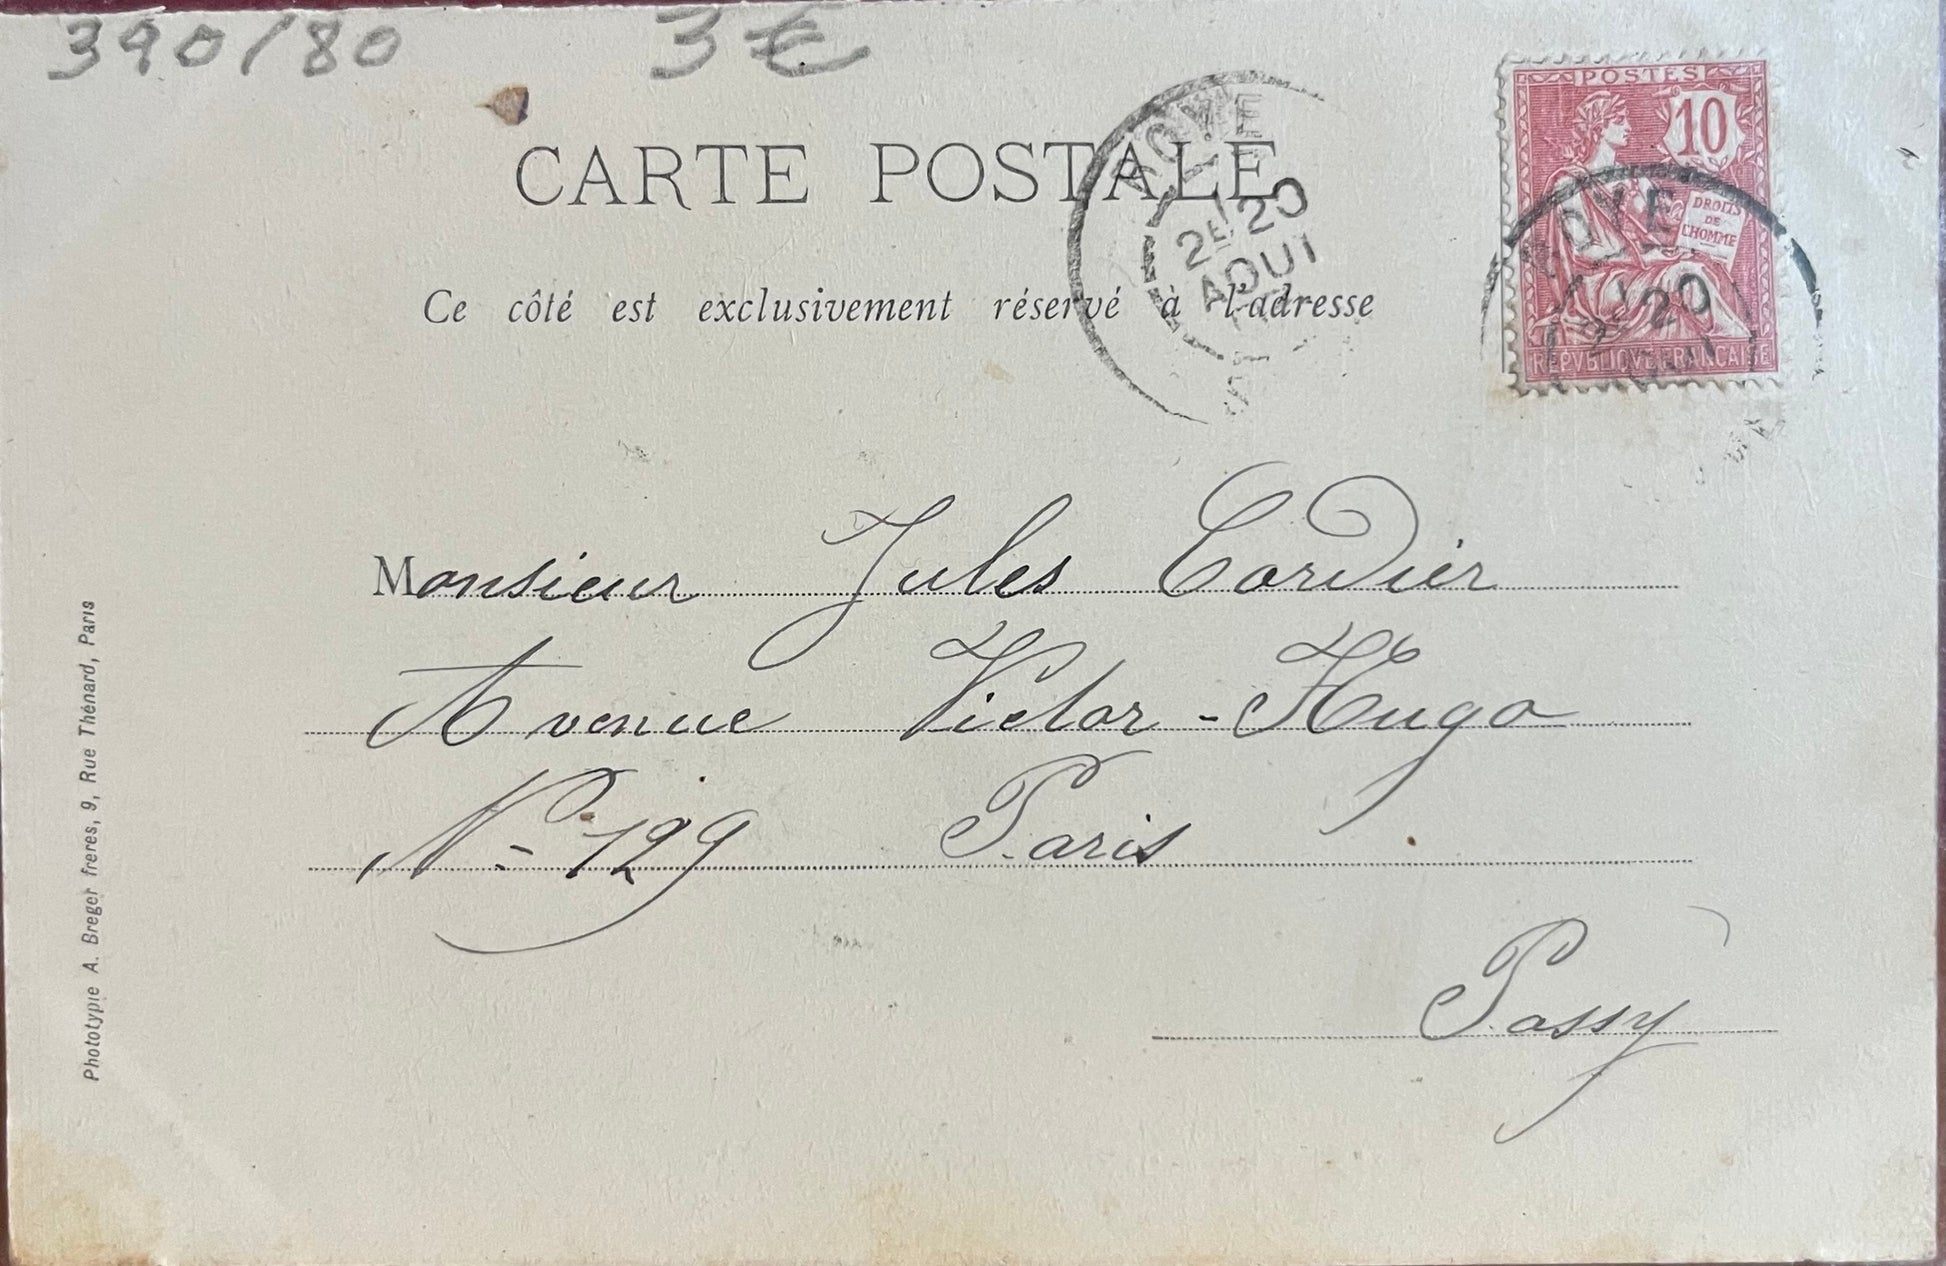 390/80 3€
POSTES
10
DROITS
DE
L'HOMME
REPVBLIQVE FRANÇAISE
CARTE POSTALE
2E 20
AOUT
20
Ce côté est exclusivement réservé à l'adresse
Monsieur Jules Cordier
Avenue Victor-Hugo
No 129 Paris
Passy
Phototypie A. Breger freres, 9, Rue Thénard, Paris